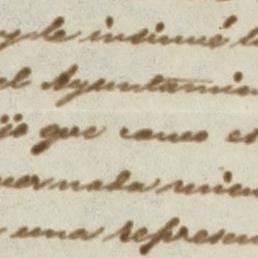 y le insinué l
el Ayuntamien
ijo que como e
uer nada mien
una represen